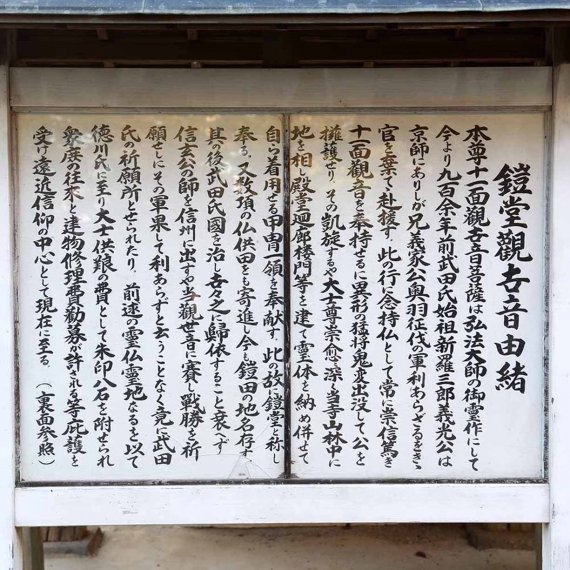 鎧堂觀音由緒
本尊十一面觀世音菩薩は弘法大師の御霊作にして
今より九百余年前武田氏始祖新羅三郎義光公は
京師にありしが兄義家公奥羽征伐の軍利あらざるをきき
官を棄て赴援す、此の行に念持仏として常に崇信篤き
十一面觀音を奉持せるに異形の猛将鬼変出没して公を
擁護せり、その凱旋するや大士尊崇愈々深く当寺山林中に
地を相し殿堂廻廊楼門等を建て霊体を納め併せて
自ら着用せる甲冑一領を奉献す、此の故に鎧堂と称し
奉る、又数項の仏供田をも寄進し今も鎧田の地名存す
其の後武田氏國を治し吝々之に歸依すること衰へず
信玄公の師を信州に出すや当觀世音に賽し戰勝を祈
願せしにその軍果して利あらずと云うことなく竟に武田
氏の祈願所とせられたり、前述の霊仏霊地なるを以て
徳川氏に至り大士供粮の費として朱印八石を附せられ
衆庶の往来、建物修理費勧募が許される等庇護を
受け遠近信仰の中心として現在に至る、(裏面参照)